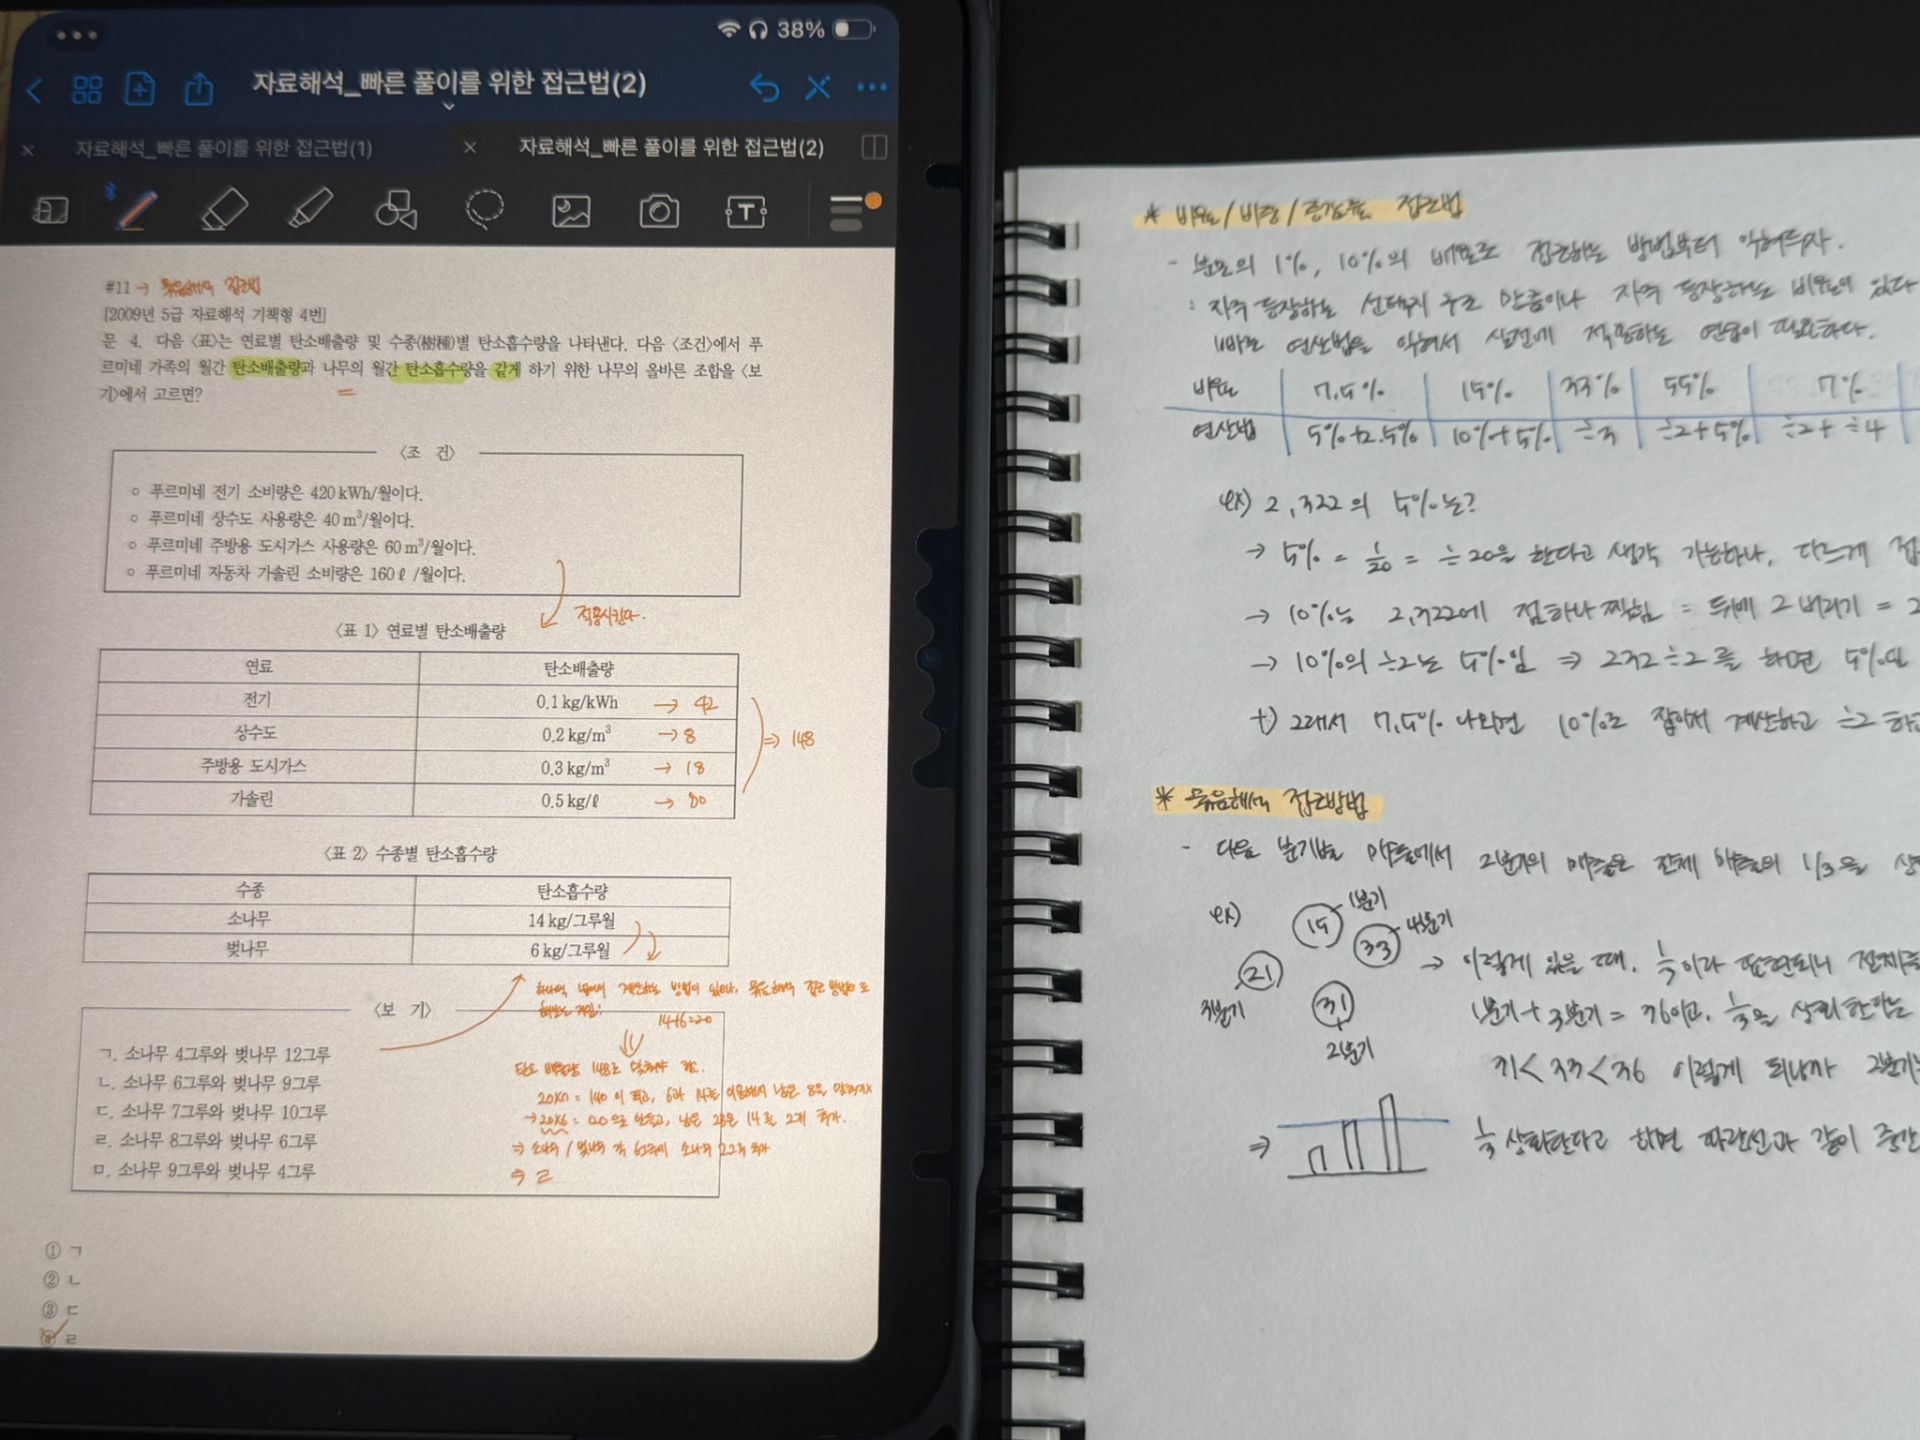 38%
자료해석_빠른 풀이를 위한 접근법(2)
자료해석_빠른 풀이를 위한 접근법(1)
자료해석_빠른 풀이를 위한 접근법(2)
#11 → 묶음해석 접근법
[2009년 5급 자료해석 기책형 4번]
문 4. 다음 <표>는 연료별 탄소배출량 및 수종(樹種)별 탄소흡수량을 나타낸다. 다음 <조건>에서 푸
르미네 가족의 월간 탄소배출량과 나무의 월간 탄소흡수량을 같게 하기 위한 나무의 올바른 조합을 <보
기>에서 고르면?
=
<조 건>
○ 푸르미네 전기 소비량은 420 kWh/월이다.
○ 푸르미네 상수도 사용량은 40 m³/월이다.
○ 푸르미네 주방용 도시가스 사용량은 60 m³/월이다.
○ 푸르미네 자동차 가솔린 소비량은 160 ℓ /월이다.
적용시킨다.
<표 1> 연료별 탄소배출량
연료 탄소배출량
전기 0.1 kg/kWh → 42
상수도 0.2 kg/m³ → 8
⇒ 148
주방용 도시가스 0.3 kg/m³ → 18
가솔린 0.5 kg/ℓ → 80
<표 2> 수종별 탄소흡수량
수종 탄소흡수량
소나무 14 kg/그루월
벚나무 6 kg/그루월
계산하는 방법이 있으나, 묶음해석 접근 방법으로
14+6=20
<보 기>
ㄱ. 소나무 4그루와 벚나무 12그루
ㄴ. 소나무 6그루와 벚나무 9그루
ㄷ. 소나무 7그루와 벚나무 10그루
ㄹ. 소나무 8그루와 벚나무 6그루
ㅁ. 소나무 9그루와 벚나무 4그루
탄소 배출량 148로
20×7 = 140 이 되고, 6과 14를 이용해서 남은 8을
→ 20×6 = 만들고, 남은 28은 14를 2개 추가.
⇒ 소나무 / 벚나무 각 6그루에 소나무 2그루 추가
⇒ ㄹ
① ㄱ
② ㄴ
③ ㄷ
④ ㄹ
* 비율/비중/증감률 접근법
- 분모의 1%, 10%의 배율로 접근하는 방법부터 익혀두자.
: 자주 등장하는 선택지 구조 만큼이나 자주 등장하는 비율이 있다
빠른 연산법을 익혀서 실전에 적용하는 연습이 필요하다.
비율 7.5% 15% 33% 55% 7%
연산법 5%+2.5% 10%+5% ÷3 ÷2+5% ÷2+ ÷4
ex) 2,322의 5%는?
→ 5% = 1/20 = ÷20을 한다고 생각 가능하나, 다르게 접
→ 10%는 2,322에 점하나 찍힘 = 뒤에 2 버리기 = 2
→ 10%의 ÷2는 5%임 ⇒ 232÷2를 하면 5%인
+) 그래서 7.5% 나오면 10%로 잡아서 계산하고 ÷2 하고
* 묶음해석 접근방법
- 다음 분기별 매출에서 2분기의 매출은 전체 매출의 1/3을 상
ex) 15 1분기
33 4분기
21 3분기
31 2분기
→ 이렇게 있을 때, 1/3이라 표현되니 전체를
1분기+3분기 = 36이고, 1/3을 상회한다는
31<33<36 이렇게 되니까 2분기는
⇒ 1/3 상회한다고 하면 파란선과 같이 중간